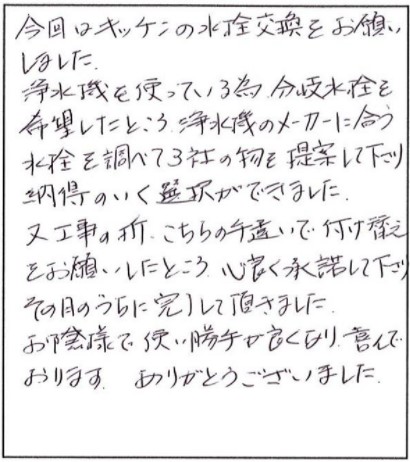 今回はキッチンの水栓交換をお願い
しました.
浄水機を使っている為.分岐水栓を
希望したところ.浄水機のメーカーに合う
水栓を調べて3社の物を提案して下さり
納得のいく選択ができました.
又工事の折.こちらの手違いで付け替え
をお願いしたところ.心良く承諾して下さり
その日のうちに完了して頂きました.
お陰様で使い勝手が良くなり.喜んで
おります. ありがとうございました.